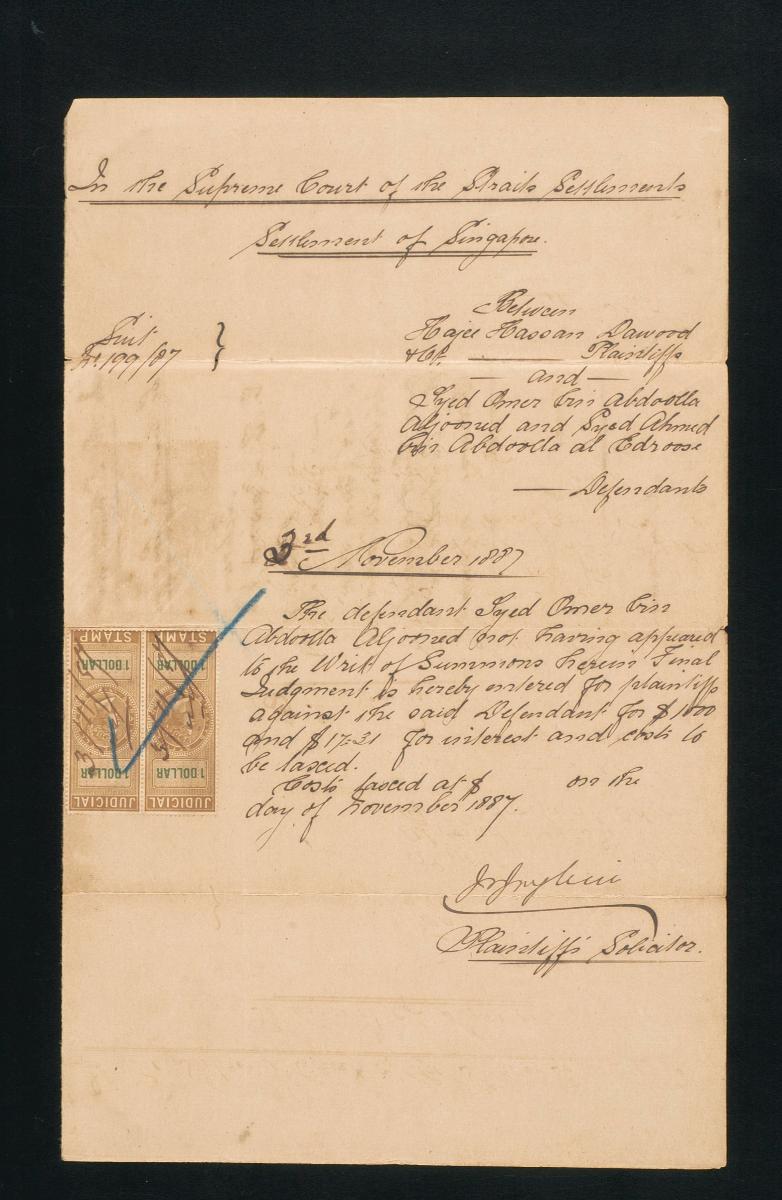 In the Supreme Court of the Straits Settlements
Settlement of Singapore.
Between
Hajee Hassan Dawood
& Co. Plaintiffs
and
Syed Omer bin Abdoolla
Aljooned and Syed Ahmed
bin Abdoolla al Edroose
Defendants
Suit
No. 199/87
3rd November 1887
The defendant Syed Omer bin
Abdoolla Aljooned not having appeared
to the Writ of Summons herein Final
Judgment is hereby entered for plaintiffs
against the said Defendant for $1000
and $17.31 for interest and costs to
be taxed.
Costs taxed at $ on the
day of November 1887.
Plaintiffs Solicitor.
STAMP
1 DOLLAR
1 DOLLAR
JUDICIAL
STAMP
1 DOLLAR
1 DOLLAR
JUDICIAL